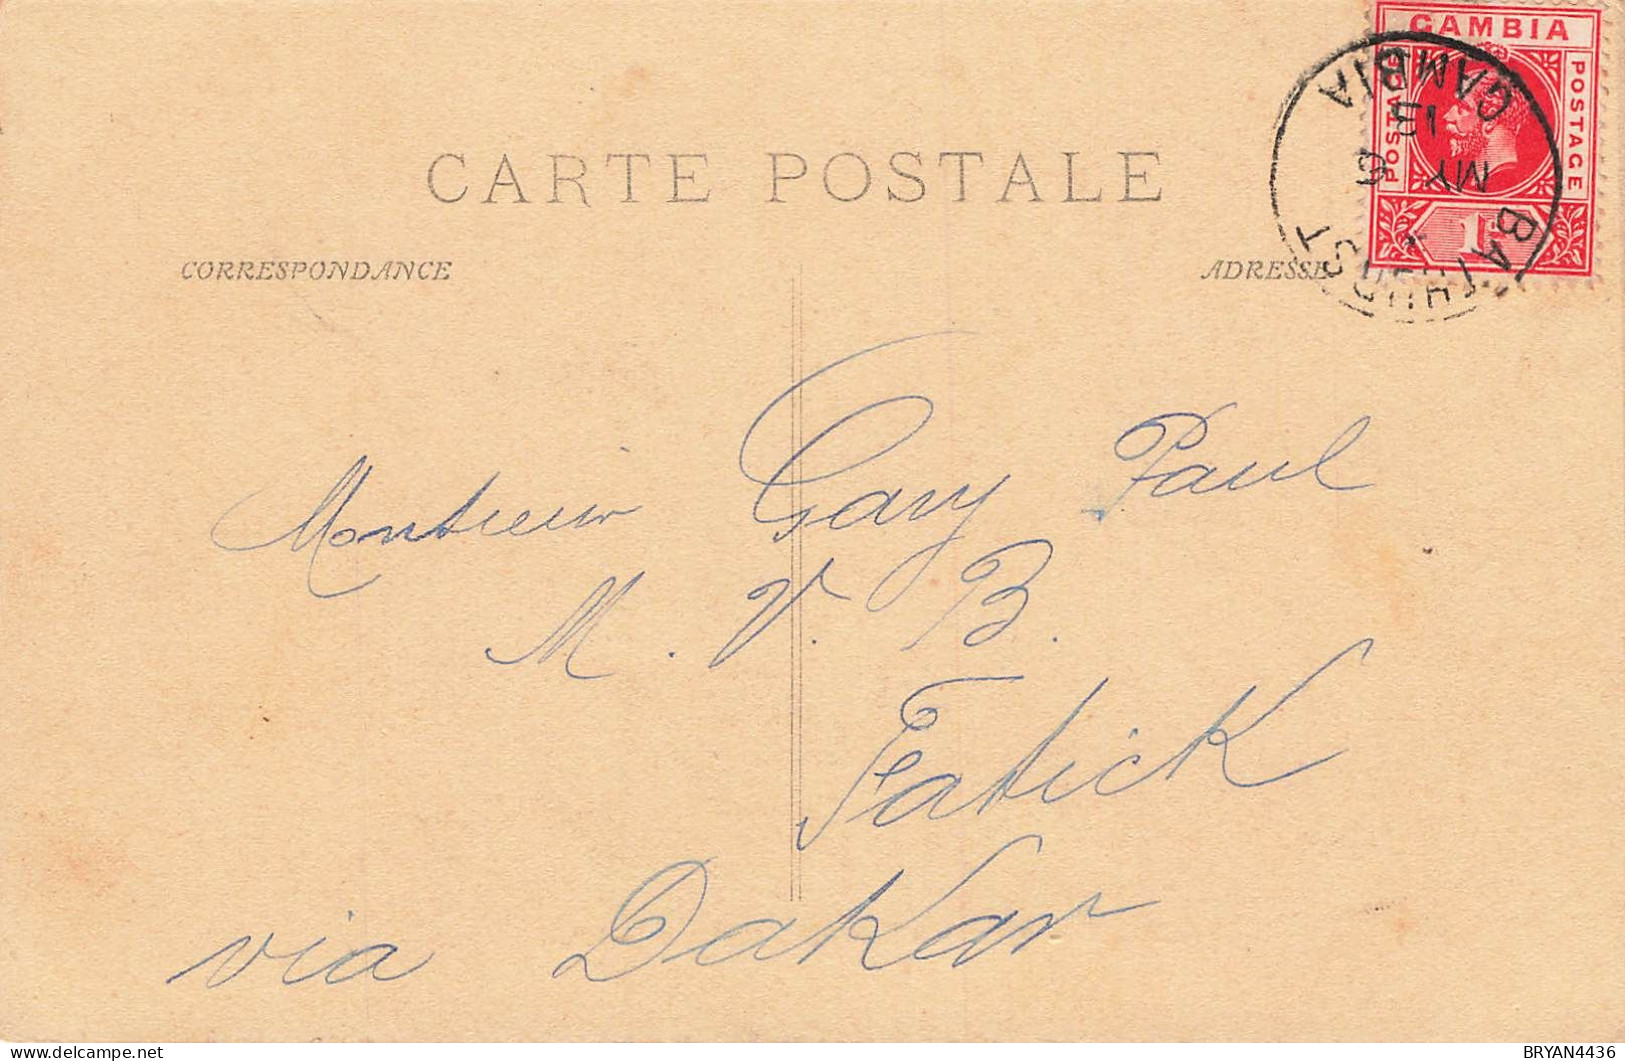 GAMBIA
POSTAGE
POSTAGE
1d
BATHURST
MY
13
GAMBIA
CARTE POSTALE
CORRESPONDANCE
ADRESSE
Monsieur Gary Paul
M. V. B.
Fatick
via Dakar
delcampe.net
BRYAN4436